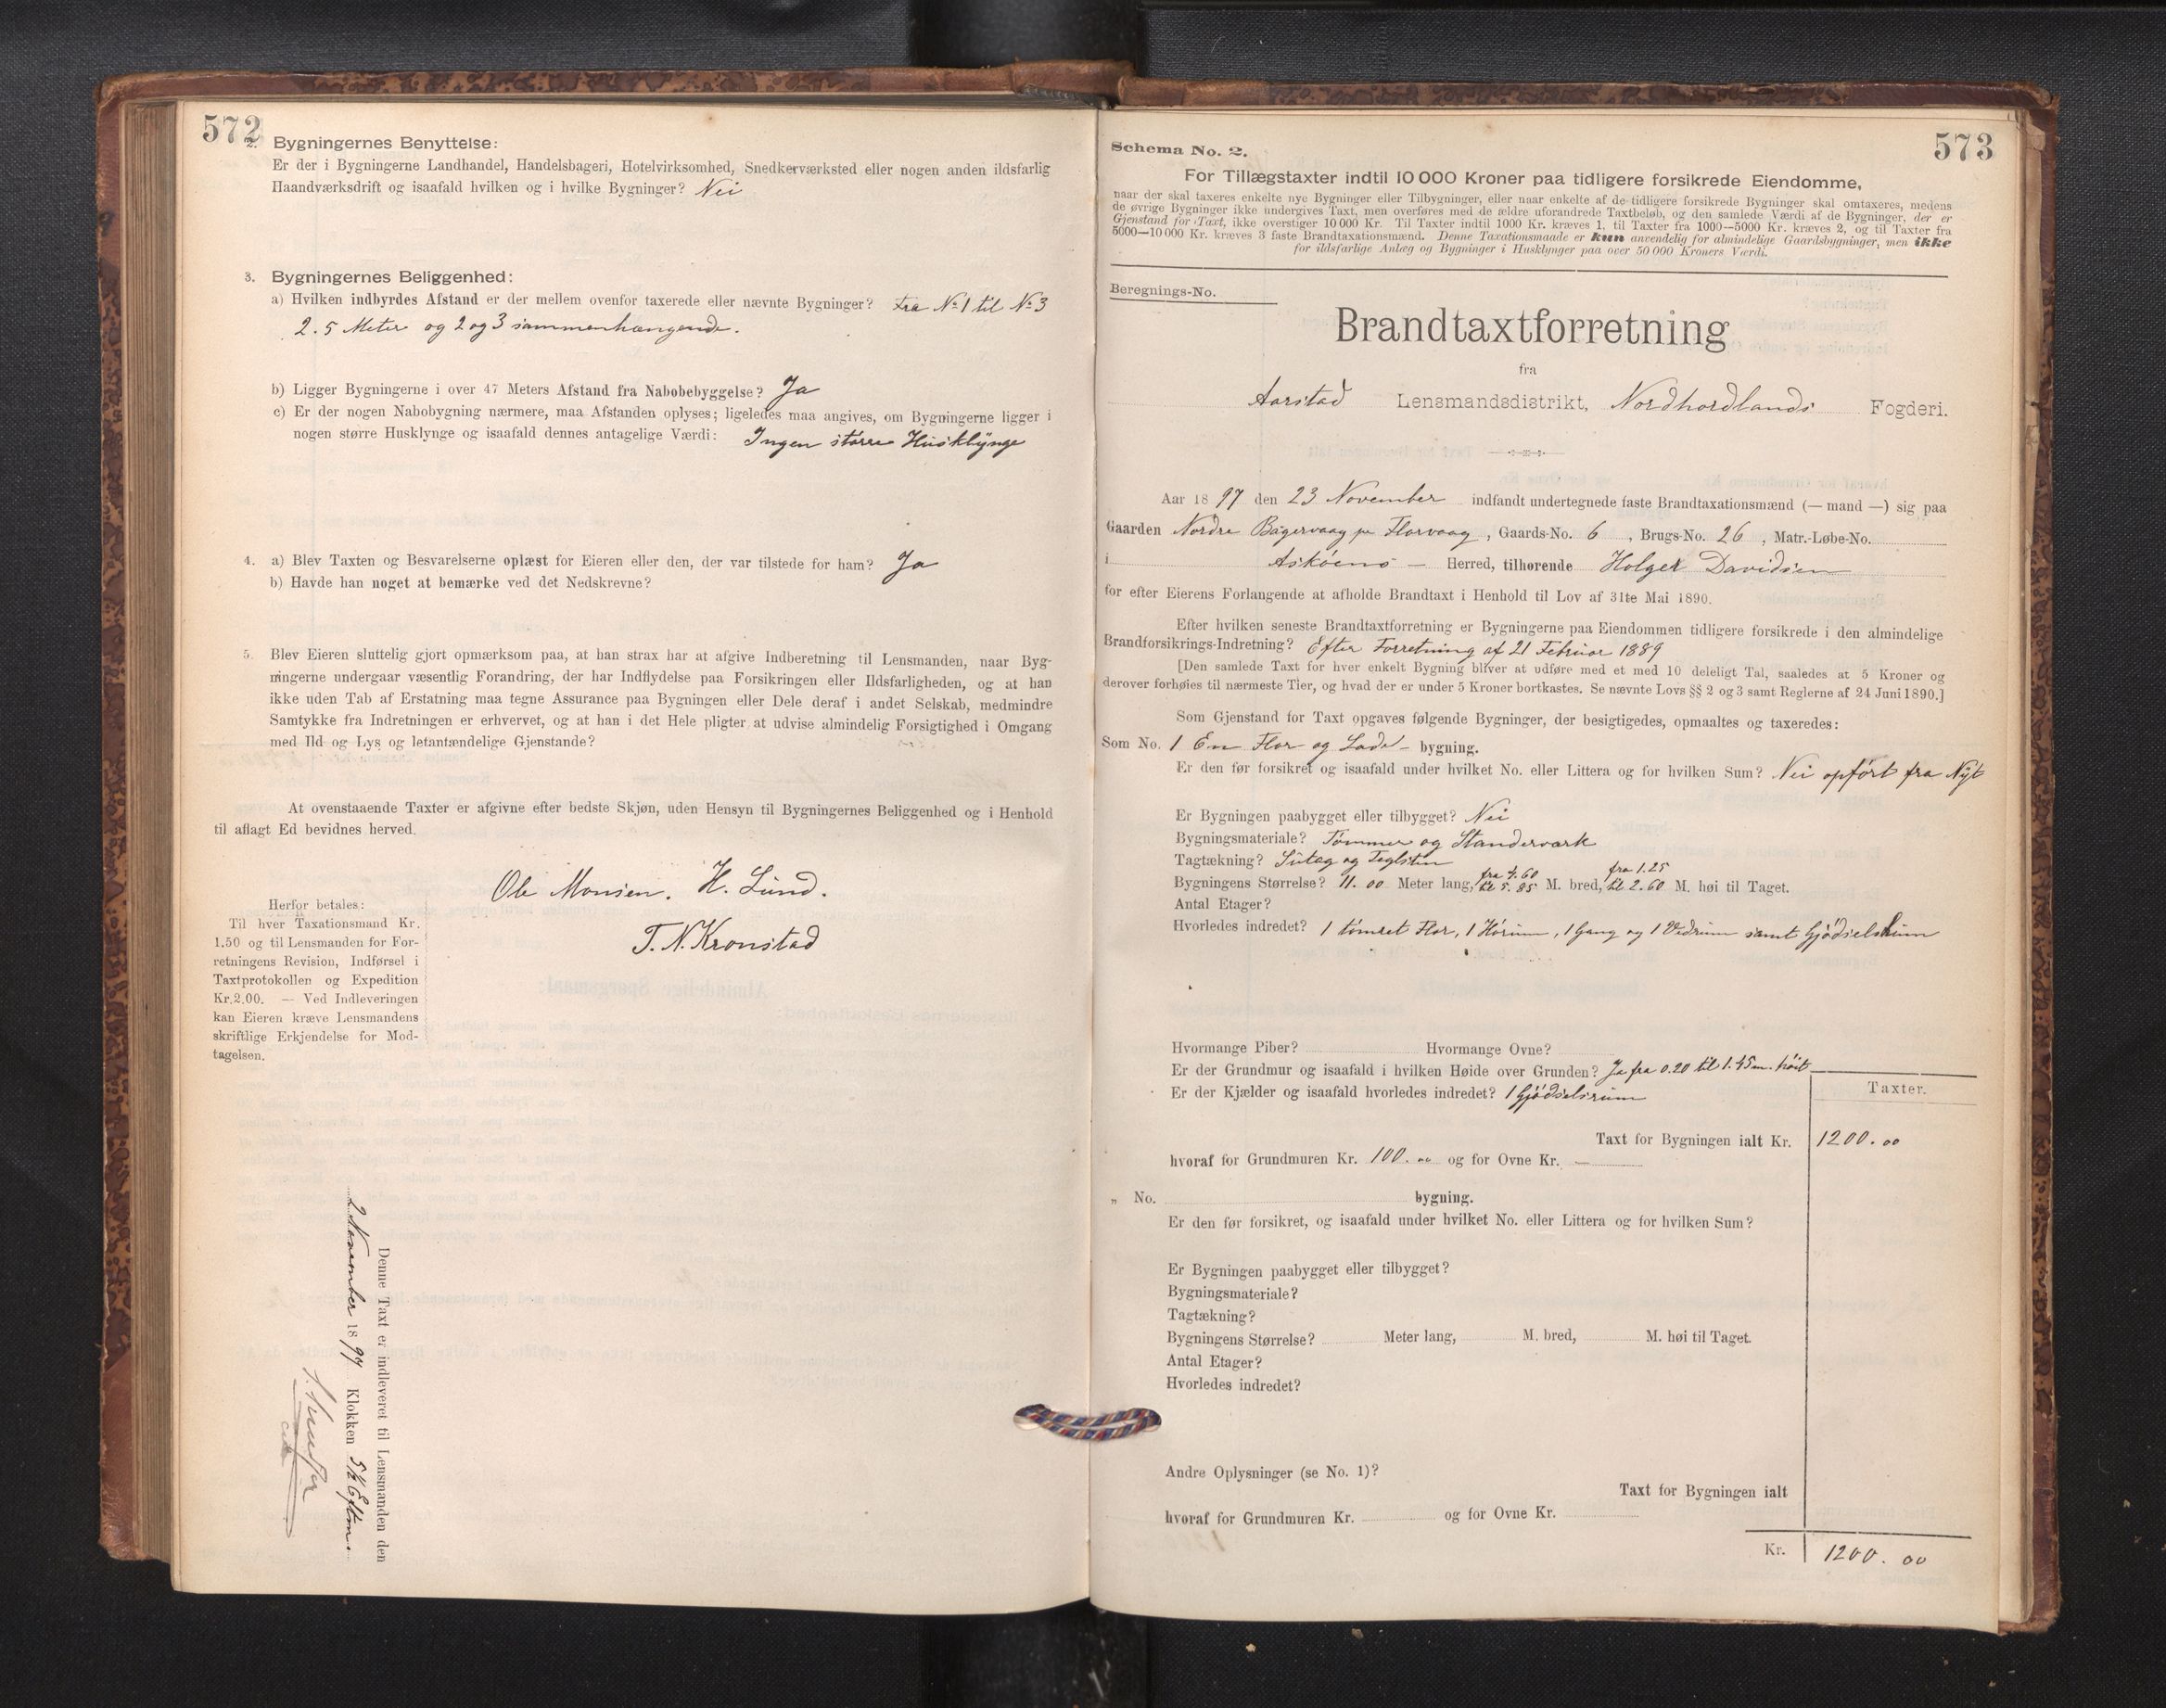 572
2. Bygningernes Benyttelse:
Er der i Bygningerne Landhandel, Handelsbageri, Hotelvirksomhed, Snedkerværksted eller nogen anden ildsfarlig
Haandværksdrift og isaafald hvilken og i hvilke Bygninger? Nei
3. Bygningernes Beliggenhed:
a) Hvilken indbyrdes Afstand er der mellem ovenfor taxerede eller nævnte Bygninger? Fra No 1 til No 3
2.5 Meter og 2 og 3 sammenhængende.
b) Ligger Bygningerne i over 47 Meters Afstand fra Nabobebyggelse? Ja
c) Er der nogen Nabobygning nærmere, maa Afstanden oplyses; ligeledes maa angives, om Bygningerne ligger i
nogen større Husklynge og isaafald dennes antagelige Værdi: Ingen större Husklynge
4. a) Blev Taxten og Besvarelserne oplæst for Eieren eller den, der var tilstede for ham? Ja
b) Havde han noget at bemærke ved det Nedskrevne?
5. Blev Eieren sluttelig gjort opmærksom paa, at han strax har at afgive Indberetning til Lensmanden, naar Byg-
ningerne undergaar væsentlig Forandring, der har Indflydelse paa Forsikringen eller Ildsfarligheden, og at han
ikke uden Tab af Erstatning maa tegne Assurance paa Bygningen eller Dele deraf i andet Selskab, medmindre
Samtykke fra Indretningen er erhvervet, og at han i det Hele pligter at udvise almindelig Forsigtighed i Omgang
med Ild og Lys og letantændelige Gjenstande?
At ovenstaaende Taxter er afgivne efter bedste Skjøn, uden Hensyn til Bygningernes Beliggenhed og i Henhold
til aflagt Ed bevidnes herved.
Ole Monsen. H. Lund.
T. N. Kronstad
Herfor betales:
Til hver Taxationsmand Kr.
1.50 og til Lensmanden for For-
retningens Revision, Indførsel i
Taxtprotokollen og Expedition
Kr. 2.00. — Ved Indleveringen
kan Eieren kræve Lensmandens
skriftlige Erkjendelse for Mod-
tagelsen.
Denne Taxt er indleveret til Lensmanden den
2 November 1897 Klokken 5 1/2 Eftm.
573
Schema No. 2.
For Tillægstaxter indtil 10 000 Kroner paa tidligere forsikrede Eiendomme,
naar der skal taxeres enkelte nye Bygninger eller Tilbygninger, eller naar enkelte af de tidligere forsikrede Bygninger skal omtaxeres, medens
de øvrige Bygninger ikke undergives Taxt, men overføres med de ældre uforandrede Taxtbeløb, og den samlede Værdi af de Bygninger, der er
Gjenstand for Taxt, ikke overstiger 10 000 Kr. Til Taxter indtil 1000 Kr. kræves 1, til Taxter fra 1000—5000 Kr. kræves 2, og til Taxter fra
5000—10 000 Kr. kræves 3 faste Brandtaxationsmænd. Denne Taxationsmaade er kun anvendelig for almindelige Gaardsbygninger, men ikke
for ildsfarlige Anlæg og Bygninger i Husklynger paa over 50 000 Kroners Værdi.
Beregnings-No.
Brandtaxtforretning
fra
Aarstad Lensmandsdistrikt, Nordhordlands Fogderi.
Aar 1897 den 23 November indfandt undertegnede faste Brandtaxationsmænd (— mand —) sig paa
Gaarden Nordre Bagervaag pr Florvaag, Gaards-No. 6, Brugs-No. 26, Matr.-Løbe-No.
i Asköens — Herred, tilhørende Holger Davidsen
for efter Eierens Forlangende at afholde Brandtaxt i Henhold til Lov af 31te Mai 1890.
Efter hvilken seneste Brandtaxtforretning er Bygningerne paa Eiendommen tidligere forsikrede i den almindelige
Brandforsikrings-Indretning? Efter Forretning af 21 Februar 1889
[Den samlede Taxt for hver enkelt Bygning bliver at udføre med et med 10 deleligt Tal, saaledes at 5 Kroner og
derover forhøies til nærmeste Tier, og hvad der er under 5 Kroner bortkastes. Se nævnte Lovs §§ 2 og 3 samt Reglerne af 24 Juni 1890.]
Som Gjenstand for Taxt opgaves følgende Bygninger, der besigtigedes, opmaaltes og taxeredes:
Som No. 1 En Flor og Lade- bygning.
Er den før forsikret og isaafald under hvilket No. eller Littera og for hvilken Sum? Nei opfört fra Nyt
Er Bygningen paabygget eller tilbygget? Nei
Bygningsmateriale? Tömmer og Standerværk
Tagtækning? Sutag og Taglsten
fra 4.60 fra 1.25
Bygningens Størrelse? 11.00 Meter lang, til 5.85 M. bred, til 2.60 M. høi til Taget.
Antal Etager?
Hvorledes indredet? 1 tömret Flor, 1 Hörum, 1 Gang og 1 Vedrum samt Gjödselskum
Hvormange Piber? Hvormange Ovne?
Er der Grundmur og isaafald i hvilken Høide over Grunden? Ja fra 0.20 til 1.45 m. höit
Er der Kjælder og isaafald hvorledes indredet? 1 Gjödselsrum
Taxter.
Taxt for Bygningen ialt Kr. 1200.00
hvoraf for Grundmuren Kr. 100.00 og for Ovne Kr. —
„ No. bygning.
Er den før forsikret, og isaafald under hvilket No. eller Littera og for hvilken Sum?
Er Bygningen paabygget eller tilbygget?
Bygningsmateriale?
Tagtækning?
Bygningens Størrelse? Meter lang, M. bred, M. høi til Taget.
Antal Etager?
Hvorledes indredet?
Andre Oplysninger (se No. 1)?
Taxt for Bygningen ialt
hvoraf for Grundmuren Kr. og for Ovne Kr.
Kr. 1200.00